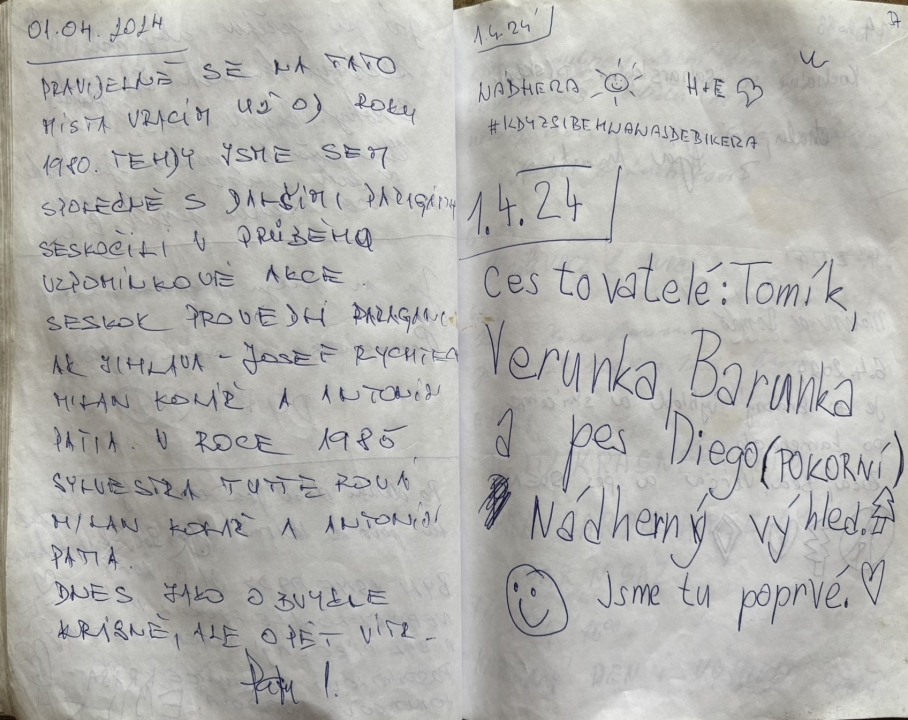 01.04.2024
PRAVIJELNĚ SE NA TATO
MÍSTA VRACÍM UŽ OD ROKU
1980. TEHDY JSME SEM
SPOLEČNĚ S DALŠÍMI PARAGÁNY
SESKOČILI V PRŮBĚHU
VZPOMÍNKOVÉ AKCE.
SESKOK PROVEDLI PARAGÁNI
AK JIHLAVA - JOSEF RYCHTKA
MILAN KONÍŘ A ANTONÍN
PATTA. V ROCE 1985
SYLVESTRA TUTTÉ
MILAN KONÍŘ A ANTONÍN
PATTA.
DNES JAKO OBVYKLE
KRÁSNĚ, ALE OPĚT VÍTR.
1.4.24
NÁDHERA H+E
#KDYZSIBEHNANAJDEBIKERA
1.4.24
Cestovatelé: Tomík,
Verunka, Barunka
a pes Diego (POKORNÍ)
Nádherný výhled.
Jsme tu poprvé.